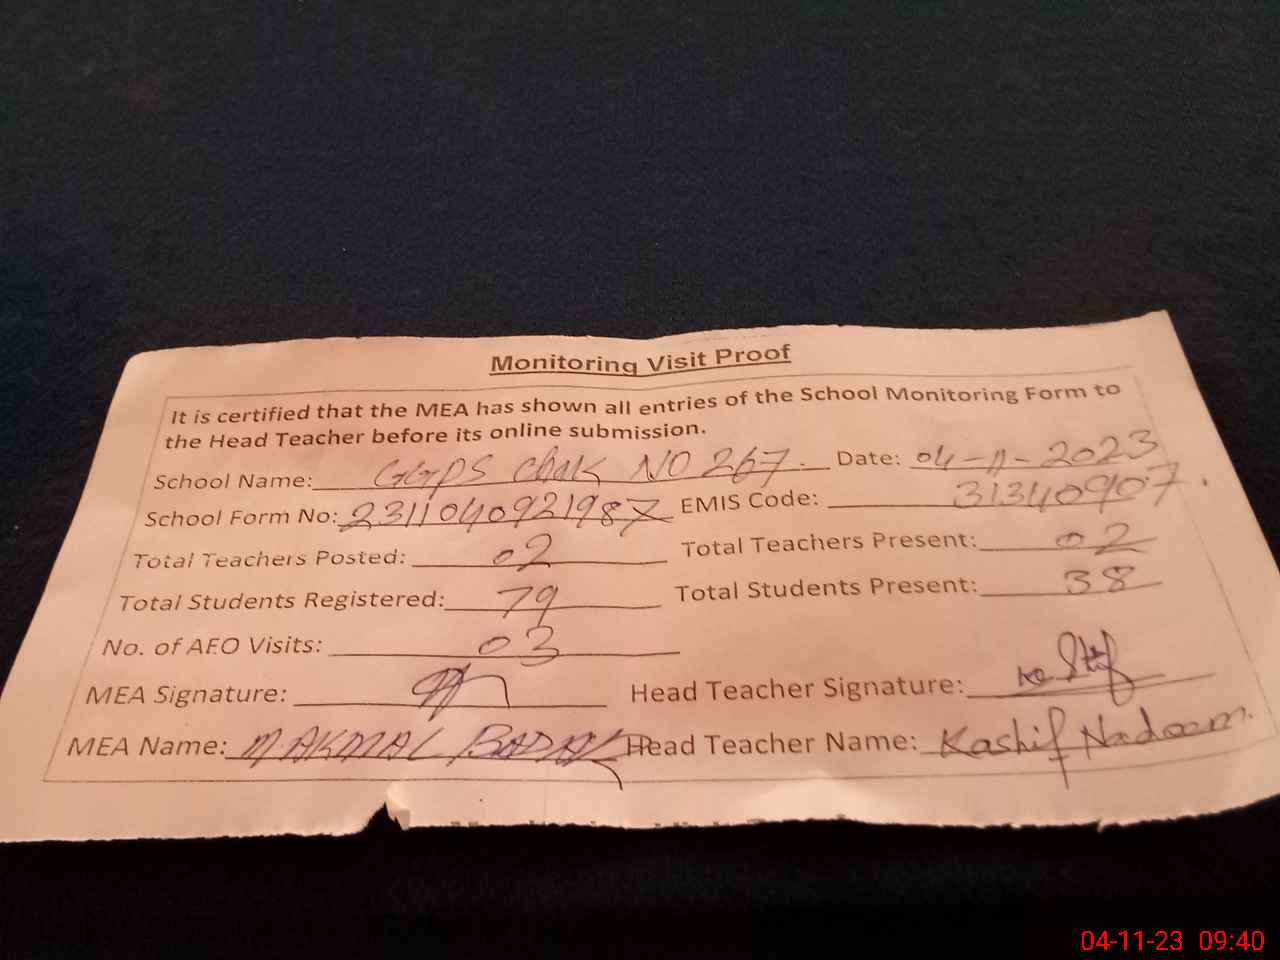 Monitoring Visit Proof
It is certified that the MEA has shown all entries of the School Monitoring Form to
the Head Teacher before its online submission.
School Name: GGPS Chak NO 267. Date: 04-11-2023
School Form No: 2311040921987 EMIS Code: 31340907.
Total Teachers Posted: 02 Total Teachers Present: 02
Total Students Registered: 79 Total Students Present: 38
No. of AEO Visits: 03
MEA Signature: Head Teacher Signature: Kashif
MEA Name: M. AKMAL Head Teacher Name: Kashif Nadeem.
04-11-23 09:40